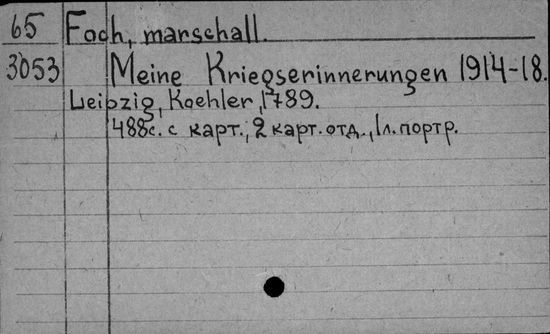 65 Foch, marschall.
3053 Meine Kriegserinnerungen 1914-18.
Leipzig, Koehler, 1789.
488с. с карт., 2 карт. отд., 1л. портр.